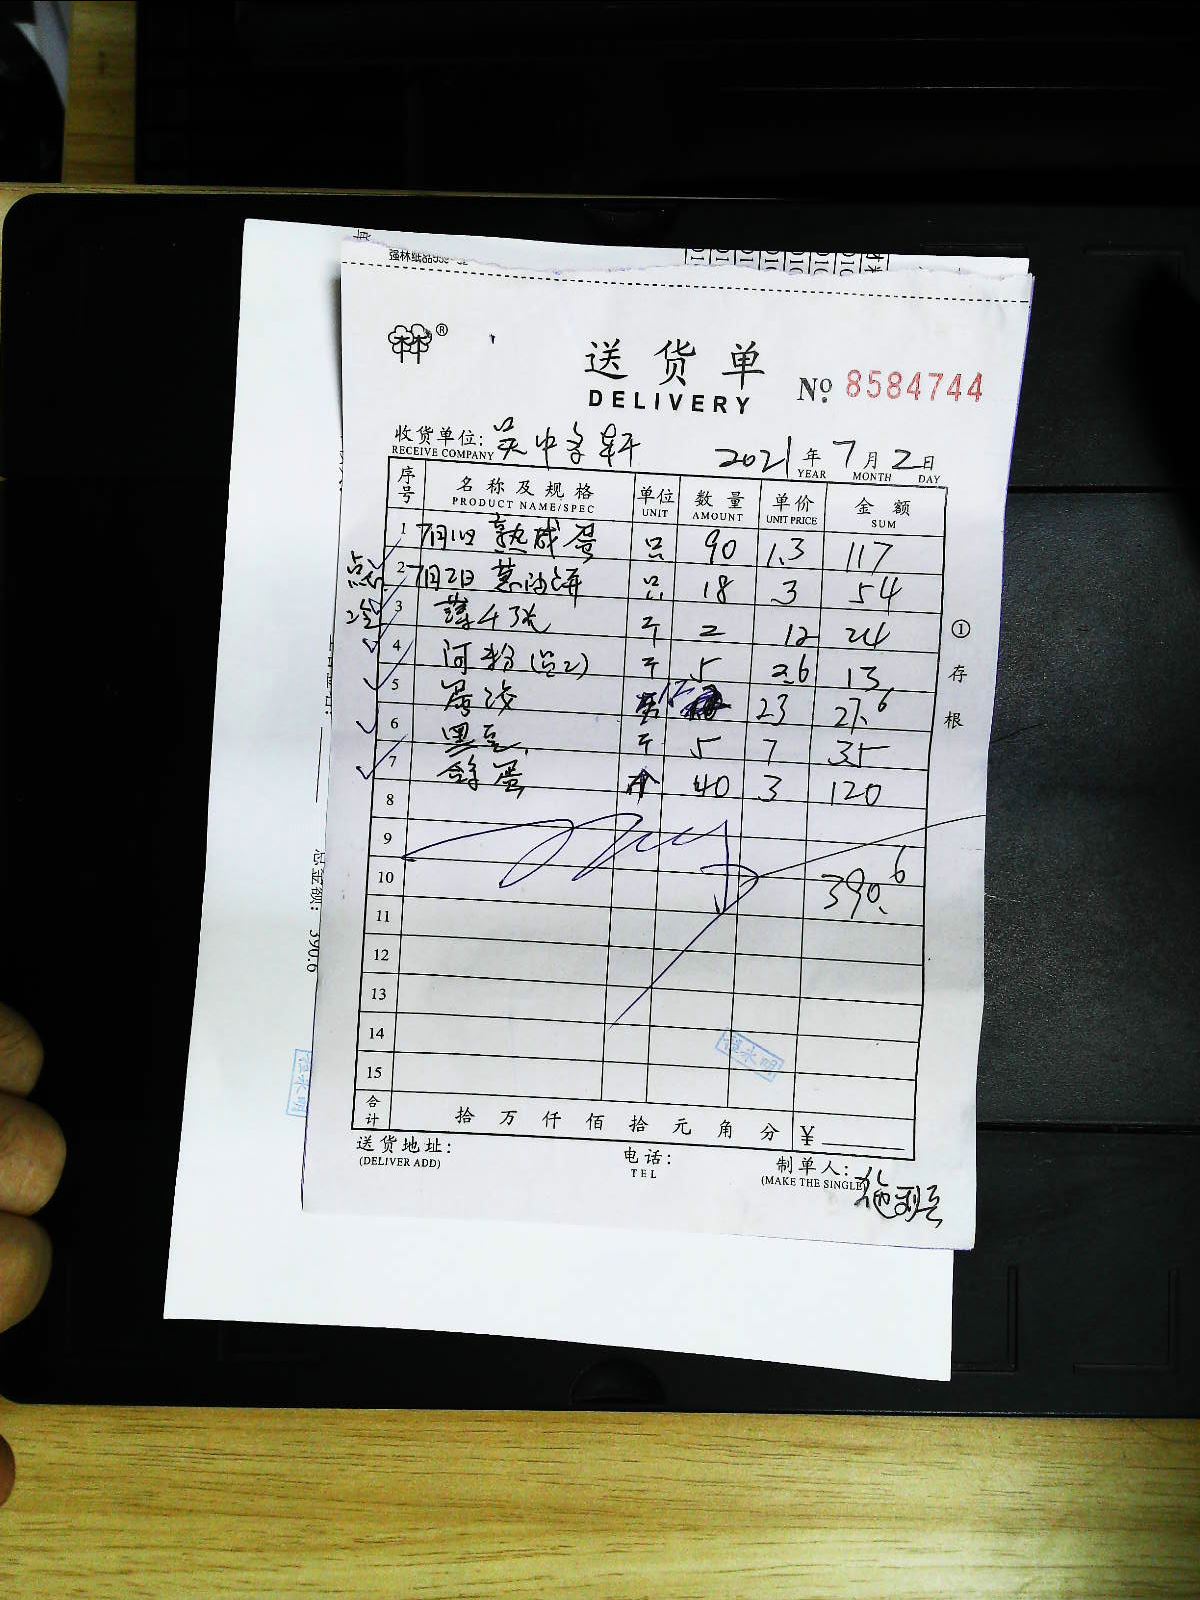 强林纸品
®
送货单
DELIVERY
№ 8584744
收货单位: 吴中 轩 2021年7月2日
RECEIVE COMPANY YEAR MONTH DAY
序号 名称及规格 单位 数量 单价 金额
PRODUCT NAME/SPEC UNIT AMOUNT UNIT PRICE SUM
1 7月1日 熟咸蛋 只 90 1.3 117
点心 2 7月2日 只 18 3 54
3 千 2 12 24
4 河粉 千 5 2.6 13
5 1.2 23 27.6
6 黑豆 千 5 7 35
7 鸽蛋 个 40 3 120
8
9
10 390.6
11
12
13
14
15
合计 拾 万 仟 佰 拾 元 角 分 ¥
送货地址: 电话: 制单人: 施
(DELIVER ADD) TEL (MAKE THE SINGLE)
① 存根
总金额: 390.6